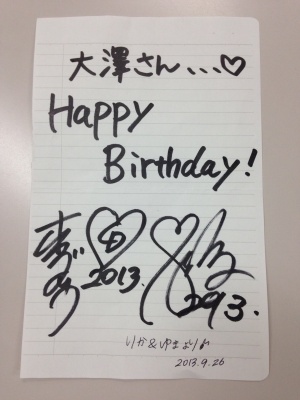 大澤さん...♡
Happy
Birthday!
2013.
293.
りか&ゆまより
2013.9.26